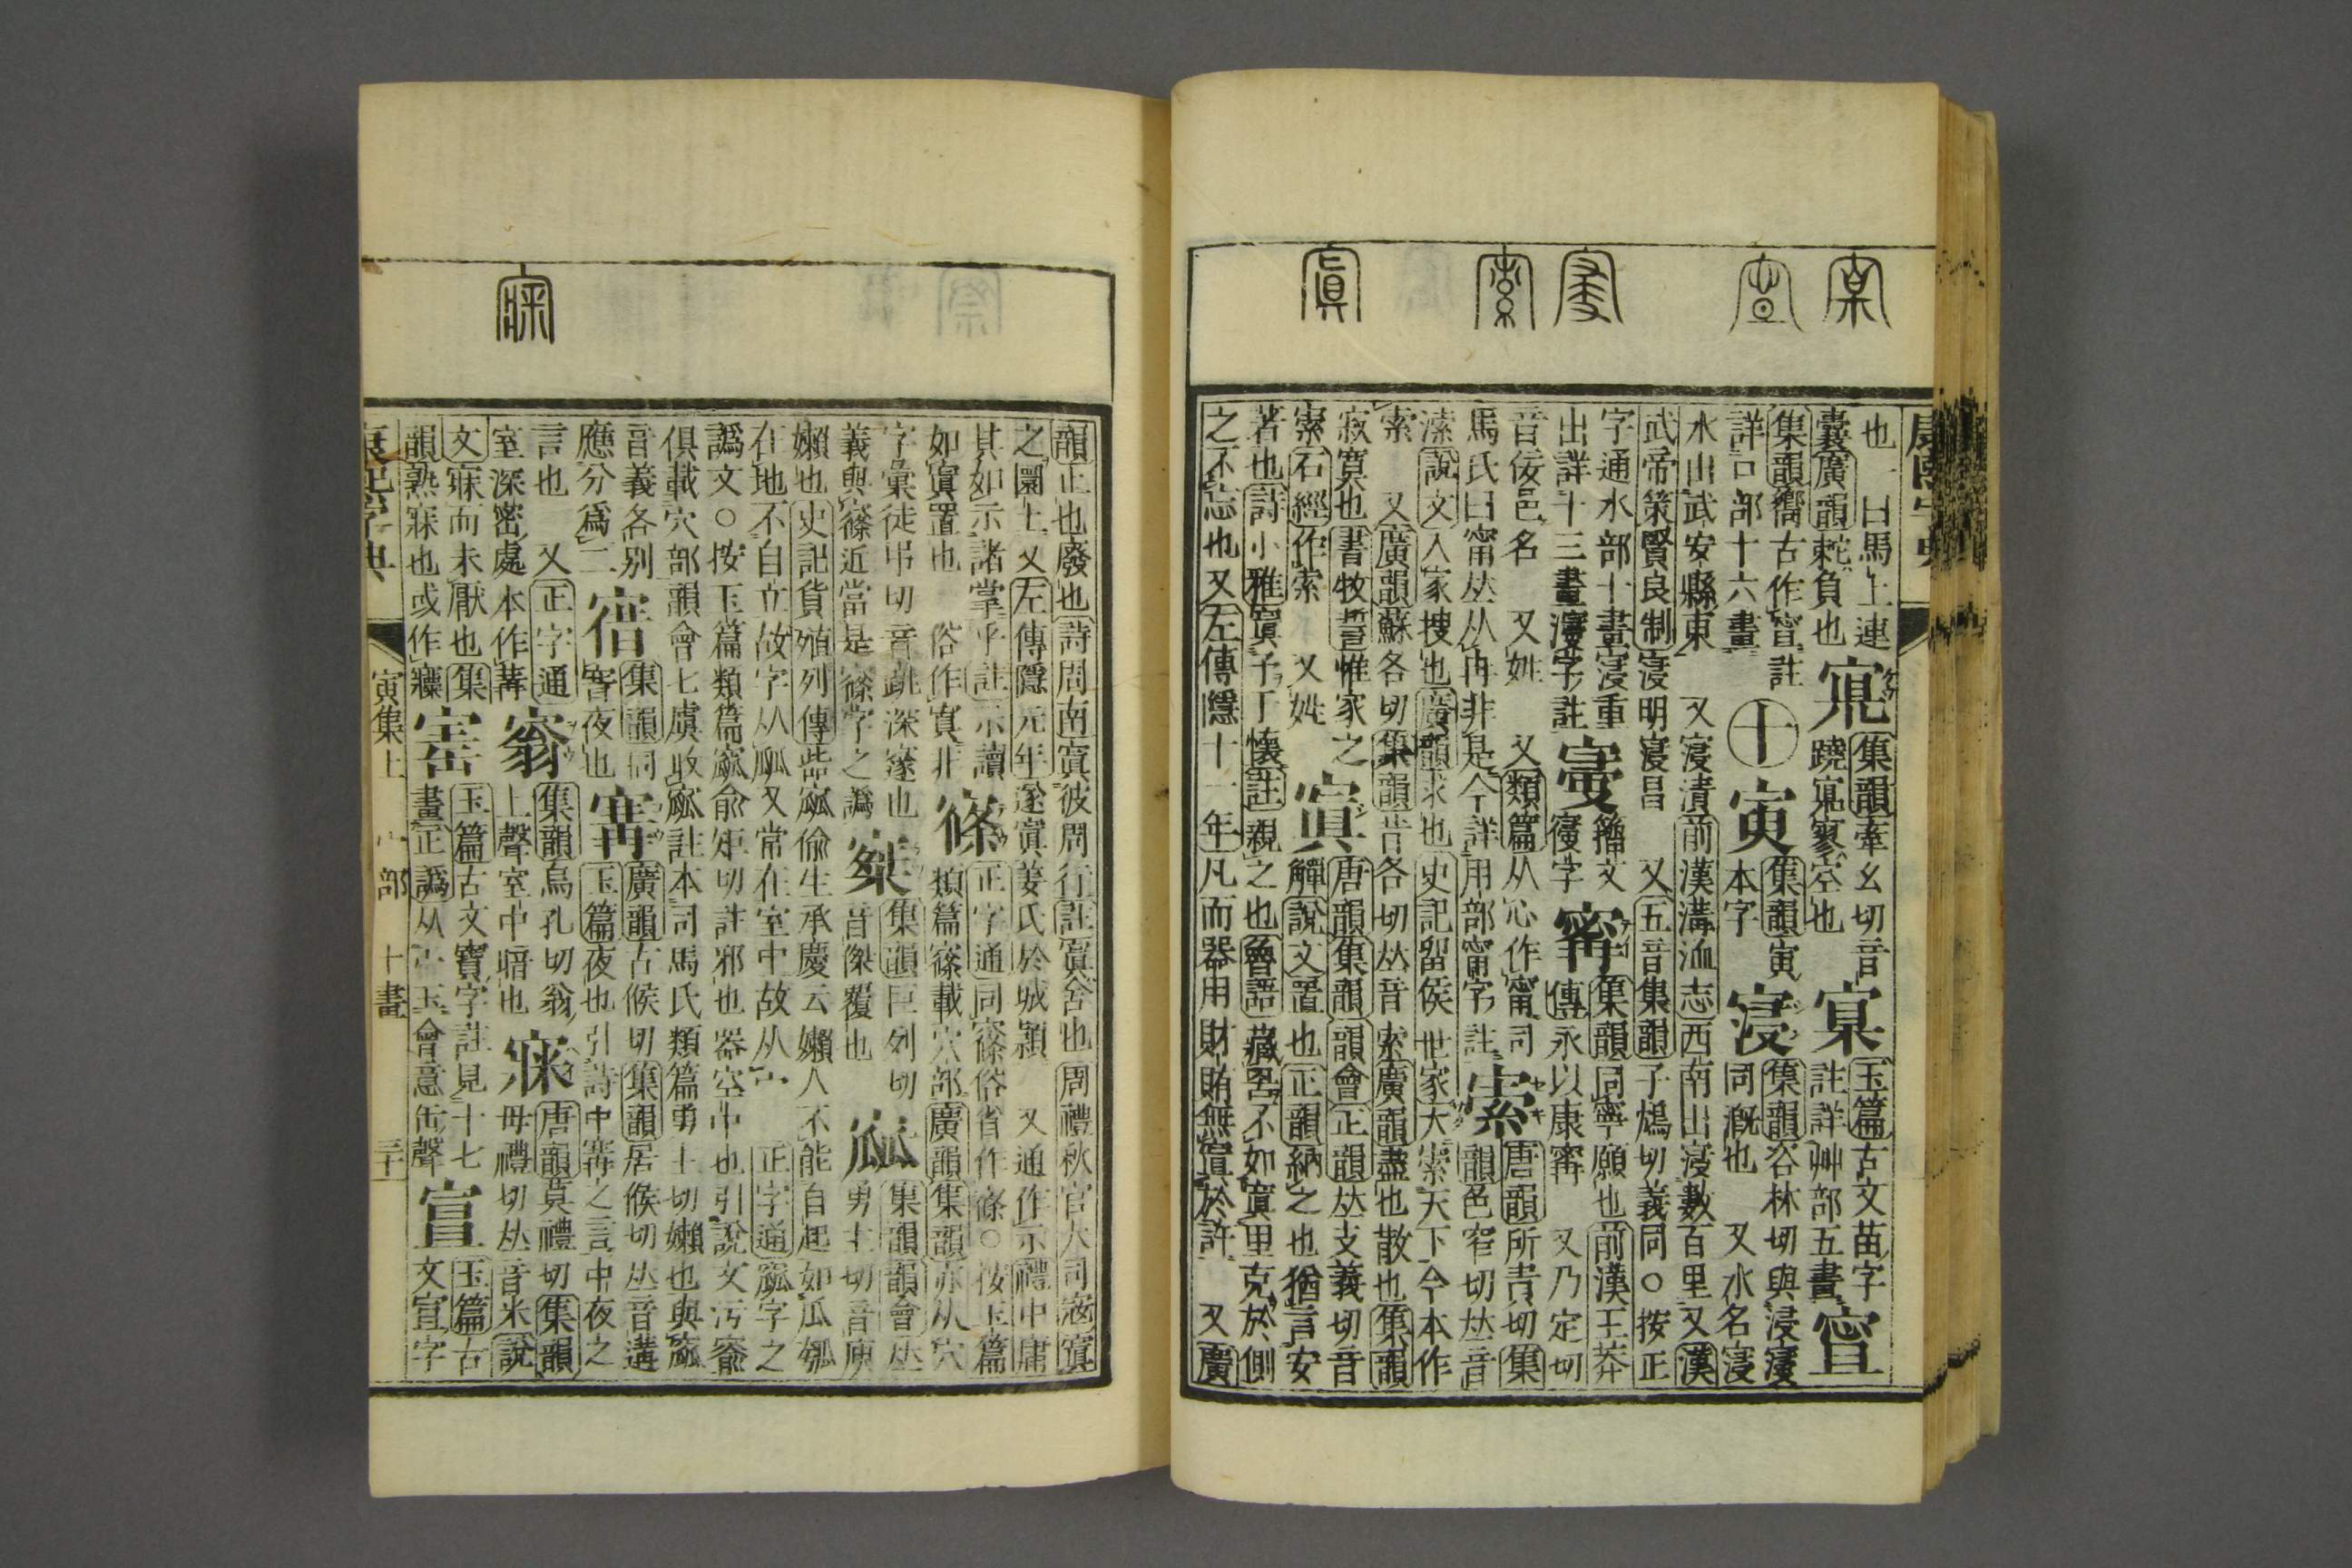 也 一曰馬上連
囊廣韻䡅負也
集韻牽幺切音
寥空也
玉篇古文苗字
註詳艸部五畫
集韻嚮古作
註
詳口部十六畫
十
寅
集韻寅
本字
寖
集韻咨林切與浸寖
同漑也 又水名寖
水出武安縣東 又寖漬前漢溝洫志西南出寖數百里又漢
武帝策賢良制寖明寖昌 又五音集韻子鴆切義同○按正
字通水部十畫寖重
出詳十三畫寖字註
籀文
字
甯
集韻同寧願也前漢王莽
傳永以康甯 又乃定切
音佞邑名 又姓 又類篇从心作甯同
馬氏曰甯𠀤从冉非是今詳用部甯字註
𡩡
唐韻所責切集
韻色窄切𠀤音
溹說文入家搜也廣韻求也史記留侯世家大索天下今本作
索 又廣韻蘇各切集韻昔各切𠀤音索廣韻盡也散也集韻
寂寞也書牧誓惟家之
索石經作索 又姓
寘
唐韻集韻韻會正韻𠀤支義切音
觶說文置也正韻納之也猶言安
著也詩小雅寘予于懷註親之也魯語藏罟不如寘里克於側
之不忘也又左傳隱十一年凡而器用財賄無寘於許 又廣
韻正也廢也詩周南寘彼周行註寘舍也周禮秋官大司寇寘
之圜土又左傳隱元年遂寘姜氏於城潁 又通作示禮中庸
其如示諸掌乎註示讀
如寘置也 俗作寘非
正字通同窱俗省作○按玉篇
類篇窱載穴部廣韻集韻亦从穴
字彙徒弔切音跳深邃也
義與窱近當是窱字之譌
集韻巨列切
音傑覆也
集韻韻會𠀤
勇主切音庾
嬾也史記貨殖列傳呰窳偷生承慶云嬾人不能自起如瓜瓠
在地不自立故字从㼌又常在室中故从宀 正字通窳字之
譌文○按玉篇類篇窳俞矩切註邪也器空中也引說文污窬
俱載穴部韻會七虞收窳註本司馬氏類篇勇主切嬾也與窳
音義各別
應分爲二
集韻同
夜也
廣韻古候切集韻居候切𠀤音遘
玉篇夜也引詩中冓之言中夜之
言也 又正字通
室深密處本作冓
集韻烏孔切翁
上聲室中暗也
唐韻莫禮切集韻
母禮切𠀤音米說
文寐而未厭也集
韻熟寐也或作
玉篇古文寶字註見十七
畫正譌从宀玉會意缶聲
玉篇古
文宜字
寅集上 宀部 十畫